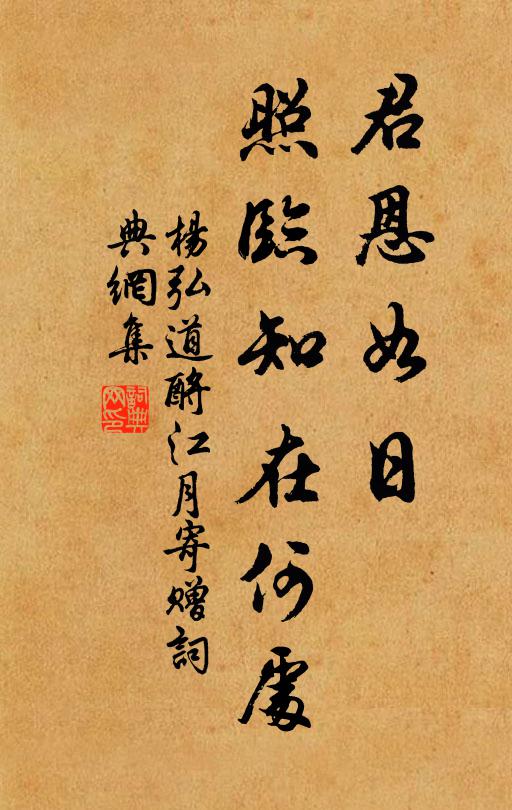 君恩如日
照臨知在何處
楊弘道酹江月寄贈詞
典網集
詞典網印